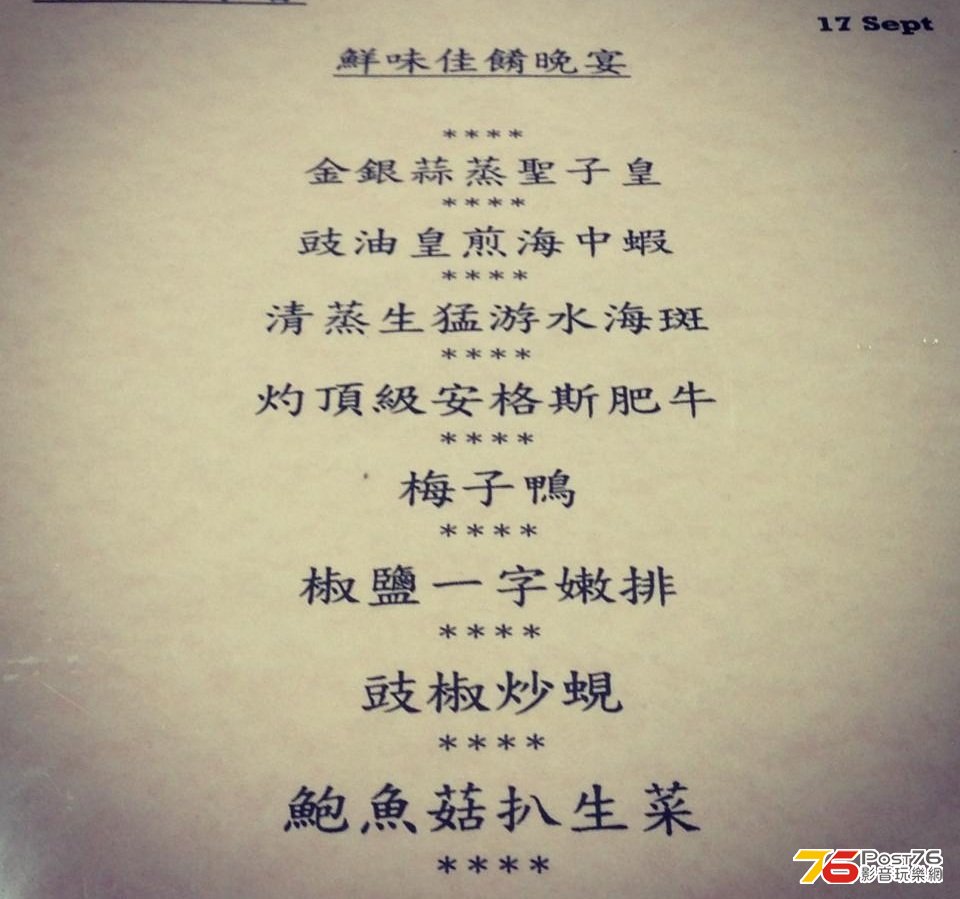 17 Sept
鮮味佳餚晚宴
****
金銀蒜蒸聖子皇
****
豉油皇煎海中蝦
****
清蒸生猛游水海斑
****
灼頂級安格斯肥牛
****
梅子鴨
****
椒鹽一字嫩排
****
豉椒炒蜆
****
鮑魚菇扒生菜
****
76 Post76
影音玩樂網